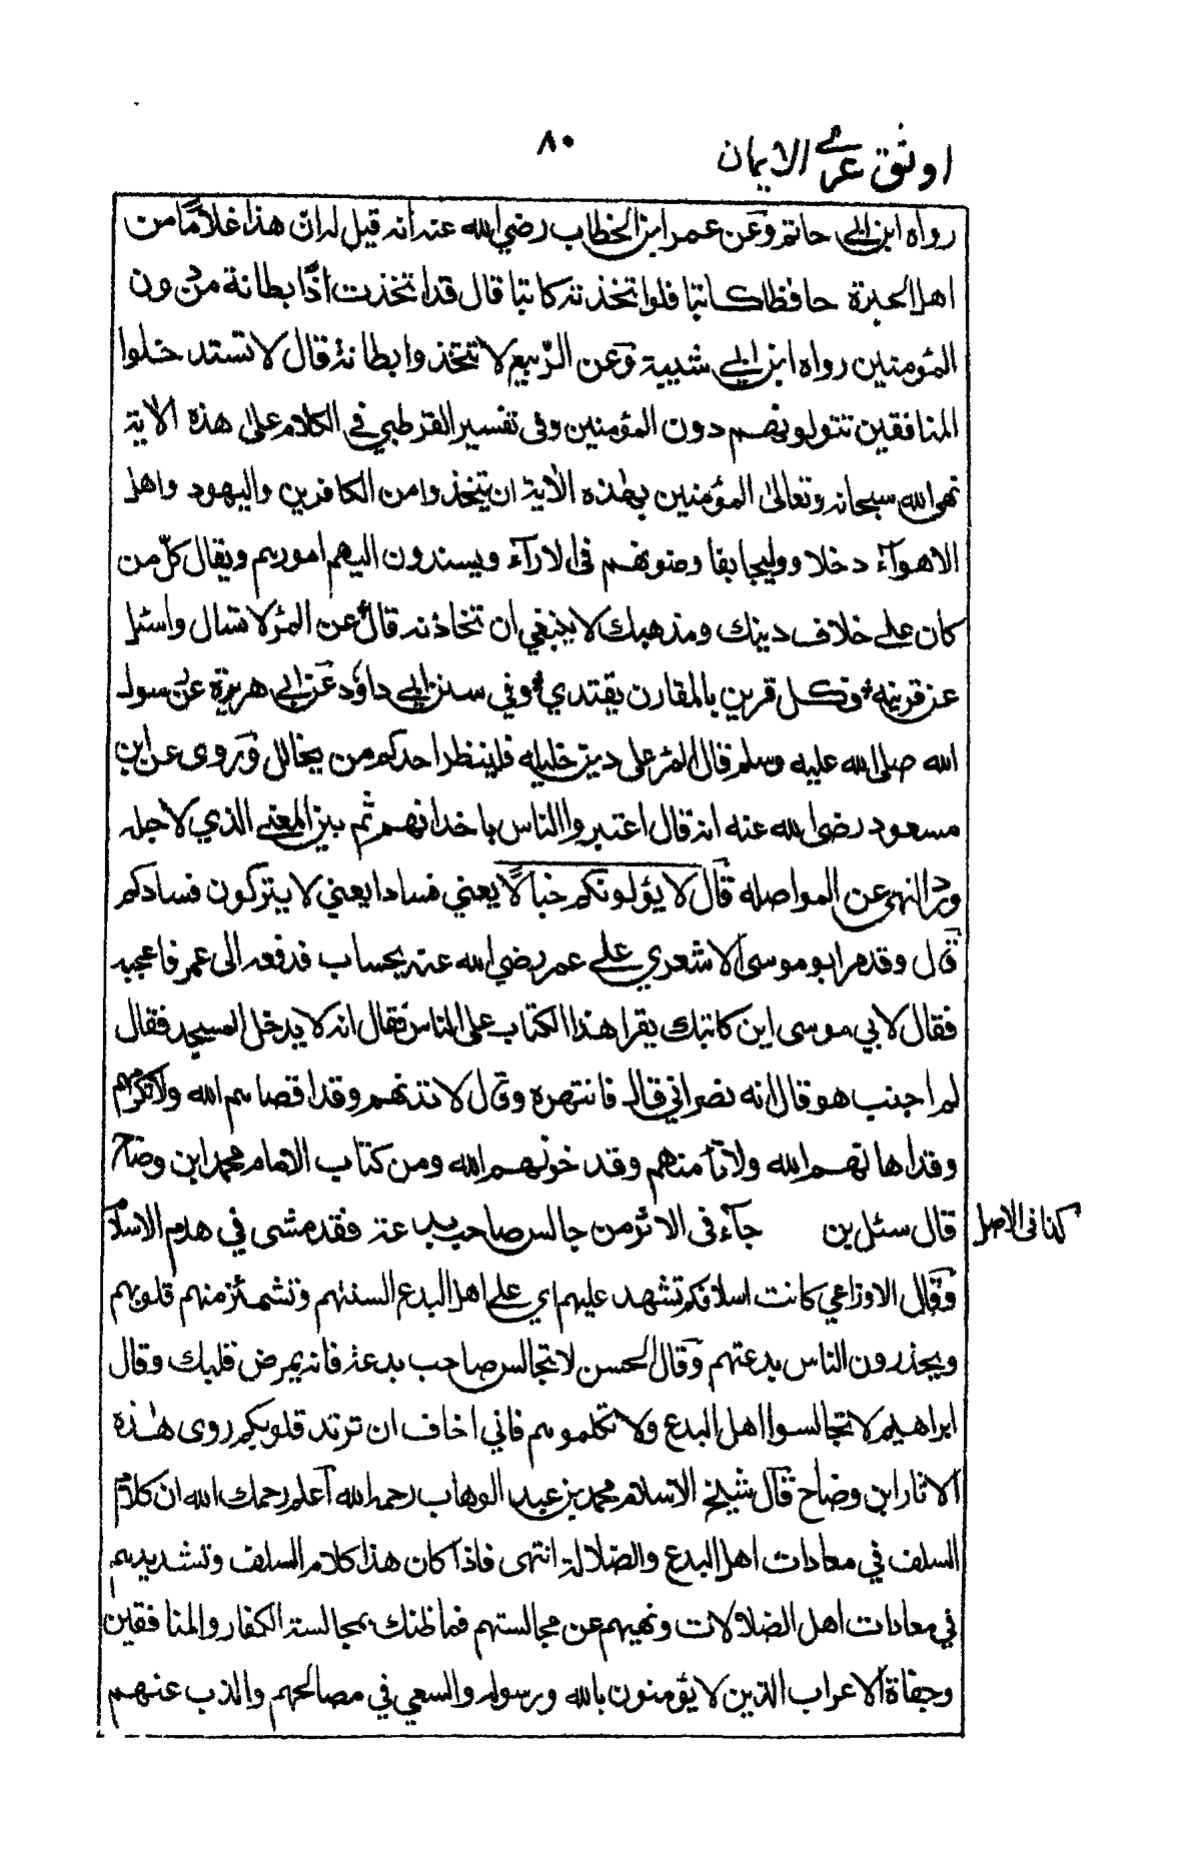 اوثق عرى الايمان
٨٠
رواه ابن ابي حاتم وعن عمر ابن الخطاب رضي الله عنه أنه قيل له ان هذا غلامًا من
اهل الحيرة حافظا كاتبا فلو اتخذته كاتبا قال قد اتخذت اذًا بطانة من دون
المؤمنين رواه ابن ابي شيبة وعن الربيع لا تتخذوا بطانة قال لا تستدخلوا
المنافقين تتولونهم دون المؤمنين وفى تفسير القرطبي في الكلام على هذه الاية
نهى الله سبحانه وتعالى المؤمنين بهذه الاية ان يتخذوا من الكافرين واليهود واهل
الاهوآء دخلا وولیجا يفاوضونهم فى الارآء ويسندون اليهم امورهم ويقال كلّ من
كان على خلاف دينك ومذهبك لا ينبغي ان تخادنه قال عن المرء لا تسال واسئل
عن قرينه فكل قرين بالمقارن يقتدي وفي سنن ابي داوٗد عن ابي هريرة عن رسول
الله صلى الله عليه وسلم قال المرء على دين خليله فلينظر احدكم من يخالل وروى عن ابن
مسعود رضى الله عنه انه قال اعتبروا الناس باخدانهم ثم بين المعنى الذي لاجله
ورد النهى عن المواصلة قال لا يؤلونكم خبالًا يعني فسادا يعني لا يتركون فسادكم
قال وقدم ابو موسى الاشعري على عمر رضي الله عنه بحساب فدفعه الى عمر فاعجبه
فقال لابي موسى اين كاتبك يقرا هذا الكتاب على الناس فقال انه لا يدخل المسجد فقال
لم اجنب هو قال انه نصراني قال فانتهره وقال لا تدنهم وقد اقصاهم الله ولا تكرمهم
وقد اهانهم الله ولا تأمنهم وقد خونهم الله ومن كتاب الامام محمد ابن وضاح
قال سئل بن جآء فى الاثر من جالس صاحب بدعة فقد مشى في هدم الاسلام
كذا فى الاصل
وقال الاوزاعي كانت اسلافكم تشهد عليهم اي على اهل البدع السنتهم وتشمئز منهم قلوبهم
ويحذرون الناس بدعتهم وقال الحسن لا تجالس صاحب بدعة فانه يمرض قلبك وقال
ابراهيم لا تجالسوا اهل البدع ولا تكلموهم فاني اخاف ان ترتد قلوبكم روى هذه
الاثار ابن وضاح قال شيخ الاسلام محمد بن عبد الوهاب رحمه الله اعلم رحمك الله ان كلام
السلف في معادات اهل البدع والضلالة انتهى فاذا كان هذا كلام السلف وتشديدهم
في معادات اهل الضلالات ونهيهم عن مجالستهم فما ظنك بمجالسة الكفار والمنافقين
وجفاة الاعراب الذين لا يؤمنون بالله ورسوله والسعي في مصالحهم والذب عنهم